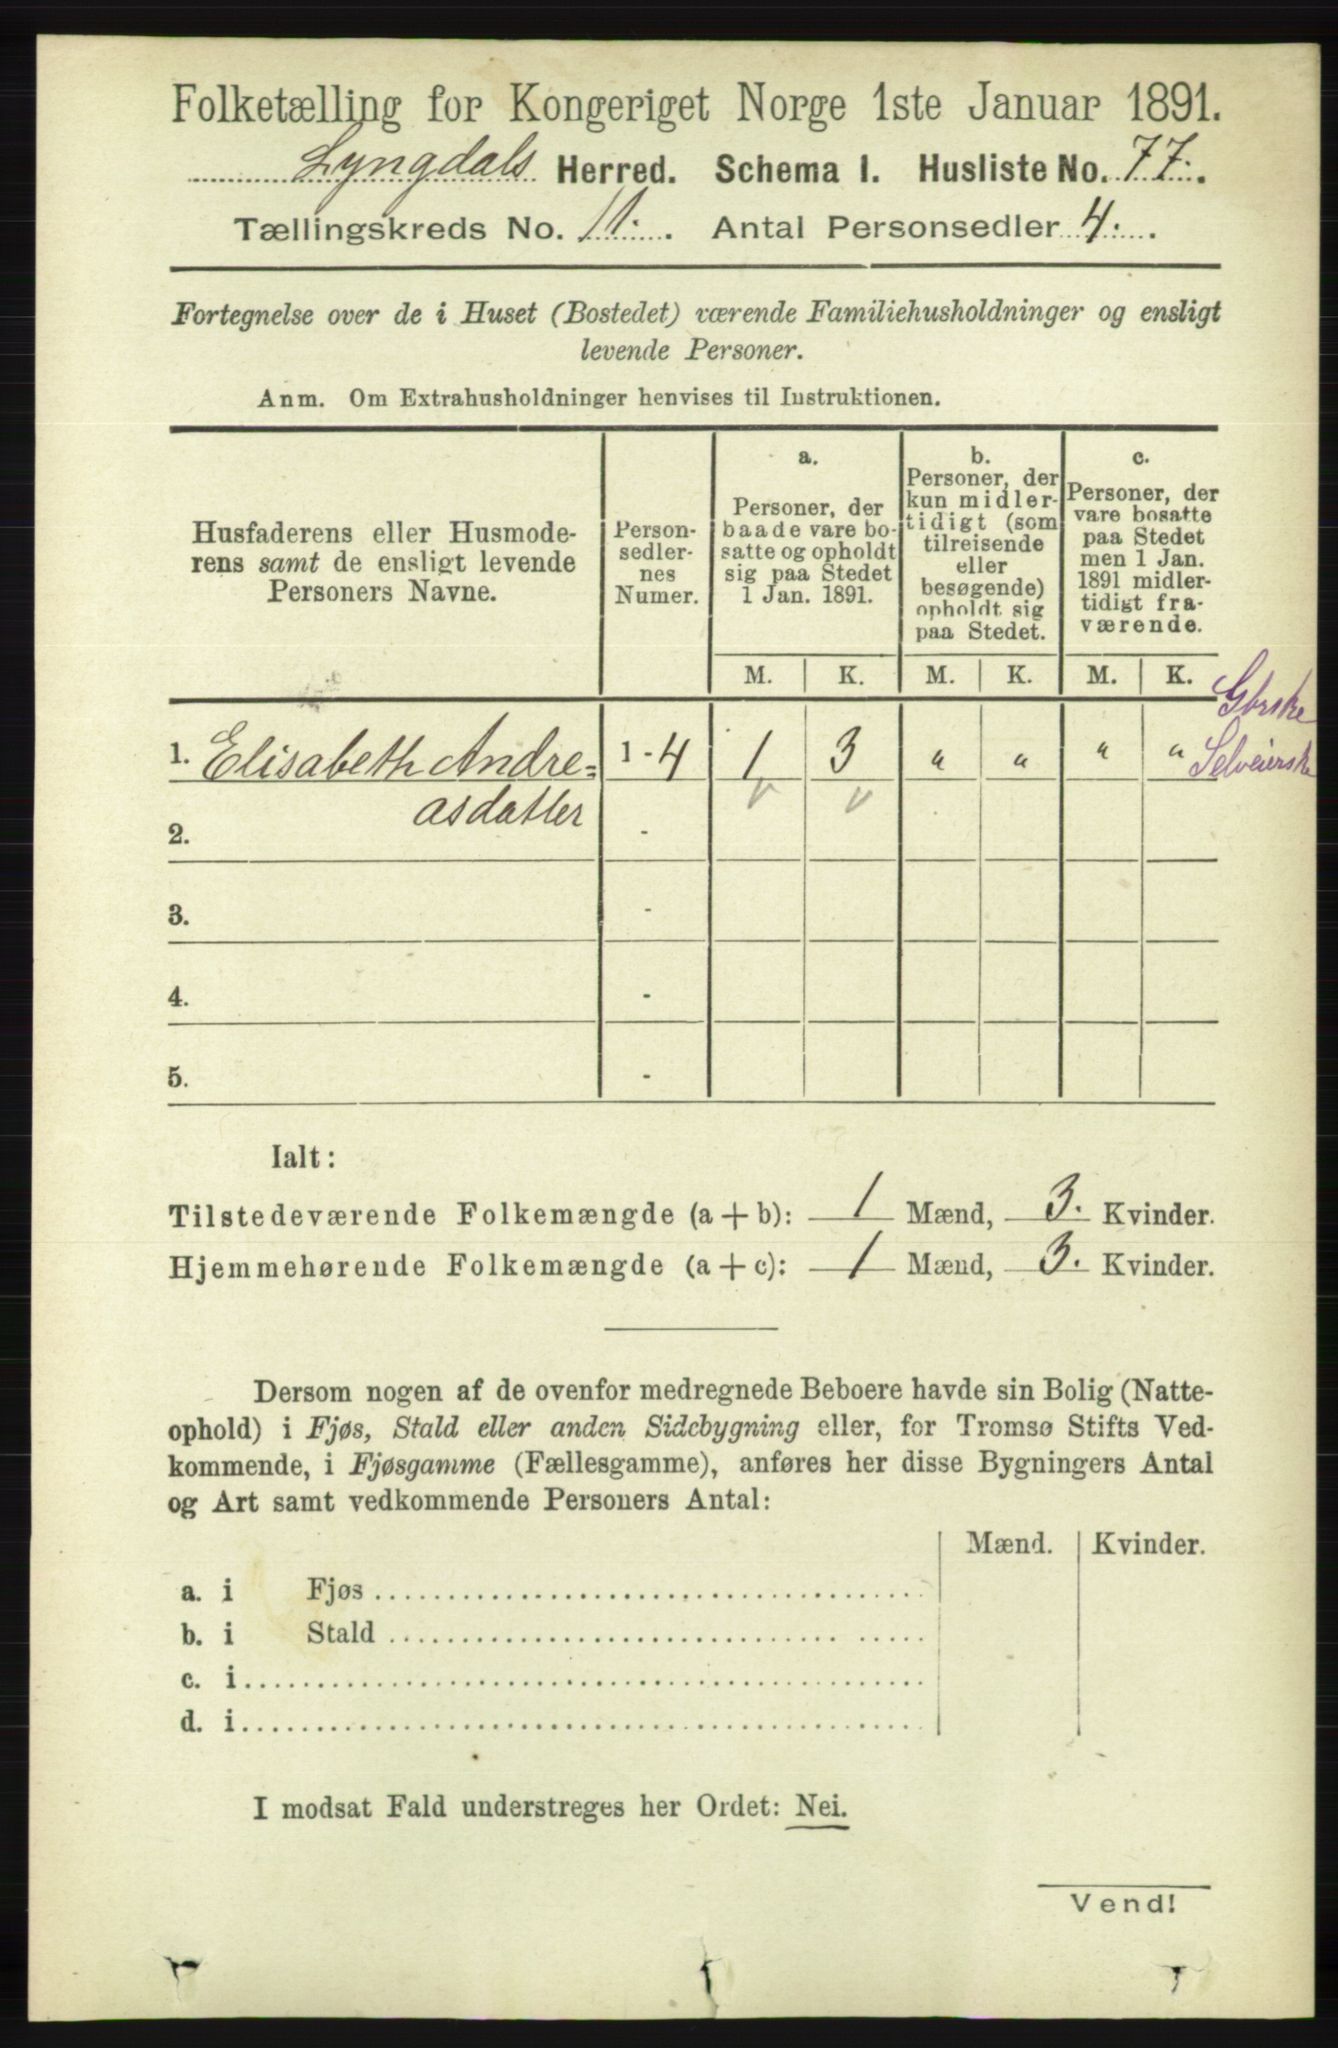 Folketælling for Kongeriget Norge 1ste Januar 1891.
Lyngdals Herred. Schema I. Husliste No. 77.
Tællingskreds No. 11. Antal Personsedler 4.
Fortegnelse over de i Huset (Bostedet) værende Familiehusholdninger og ensligt
levende Personer.
Anm. Om Extrahusholdninger henvises til Instruktionen.
Husfaderens eller Husmode-
rens samt de ensligt levende
Personers Navne.
Person-
sedler-
nes
Numer.
a.
Personer, der
baade vare bo-
satte og opholdt
sig paa Stedet
1 Jan. 1891.
b.
Personer, der
kun midler-
tidigt (som
tilreisende
eller
besøgende)
opholdt sig
paa Stedet.
c.
Personer, der
vare bosatte
paa Stedet
men 1 Jan.
1891 midler-
tidigt fra-
værende.
M. K. M. K. M. K.
1. Elisabeth Andre= 1 - 4 1 3 " " " " Selveierske
asdatter
2. -
3. -
4. -
5. -
Ialt:
Tilstedeværende Folkemængde (a + b): 1 Mænd, 3. Kvinder.
Hjemmehørende Folkemængde (a + c): 1 Mænd, 3. Kvinder.
Dersom nogen af de ovenfor medregnede Beboere havde sin Bolig (Natte-
ophold) i Fjøs, Stald eller anden Sidebygning eller, for Tromsø Stifts Ved-
kommende, i Fjøsgamme (Fællesgamme), anføres her disse Bygningers Antal
og Art samt vedkommende Personers Antal:
Mænd. Kvinder.
a. i Fjøs
b. i Stald
c. i
d. i
I modsat Fald understreges her Ordet: Nei.
Vend!